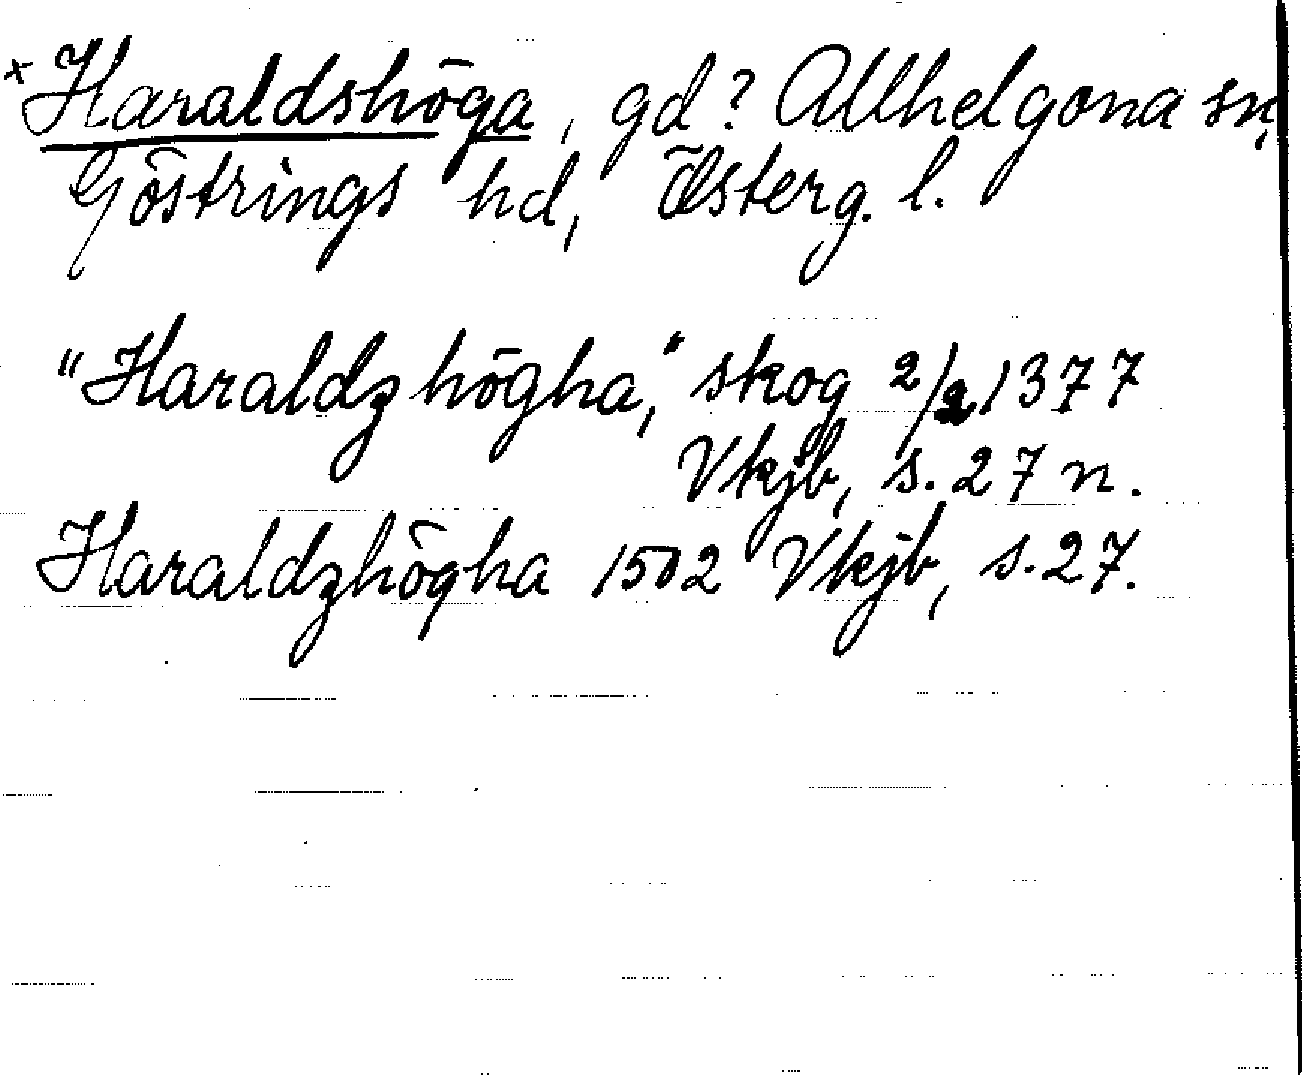 + Haraldshöga, gd? Allhelgona sn,
Göstrings hd, Österg. l.
"Haraldzhögha," skog 2/2 1377
Vkjb, s. 27 n.
Haraldzhögha 1502 Vkjb, s. 27.